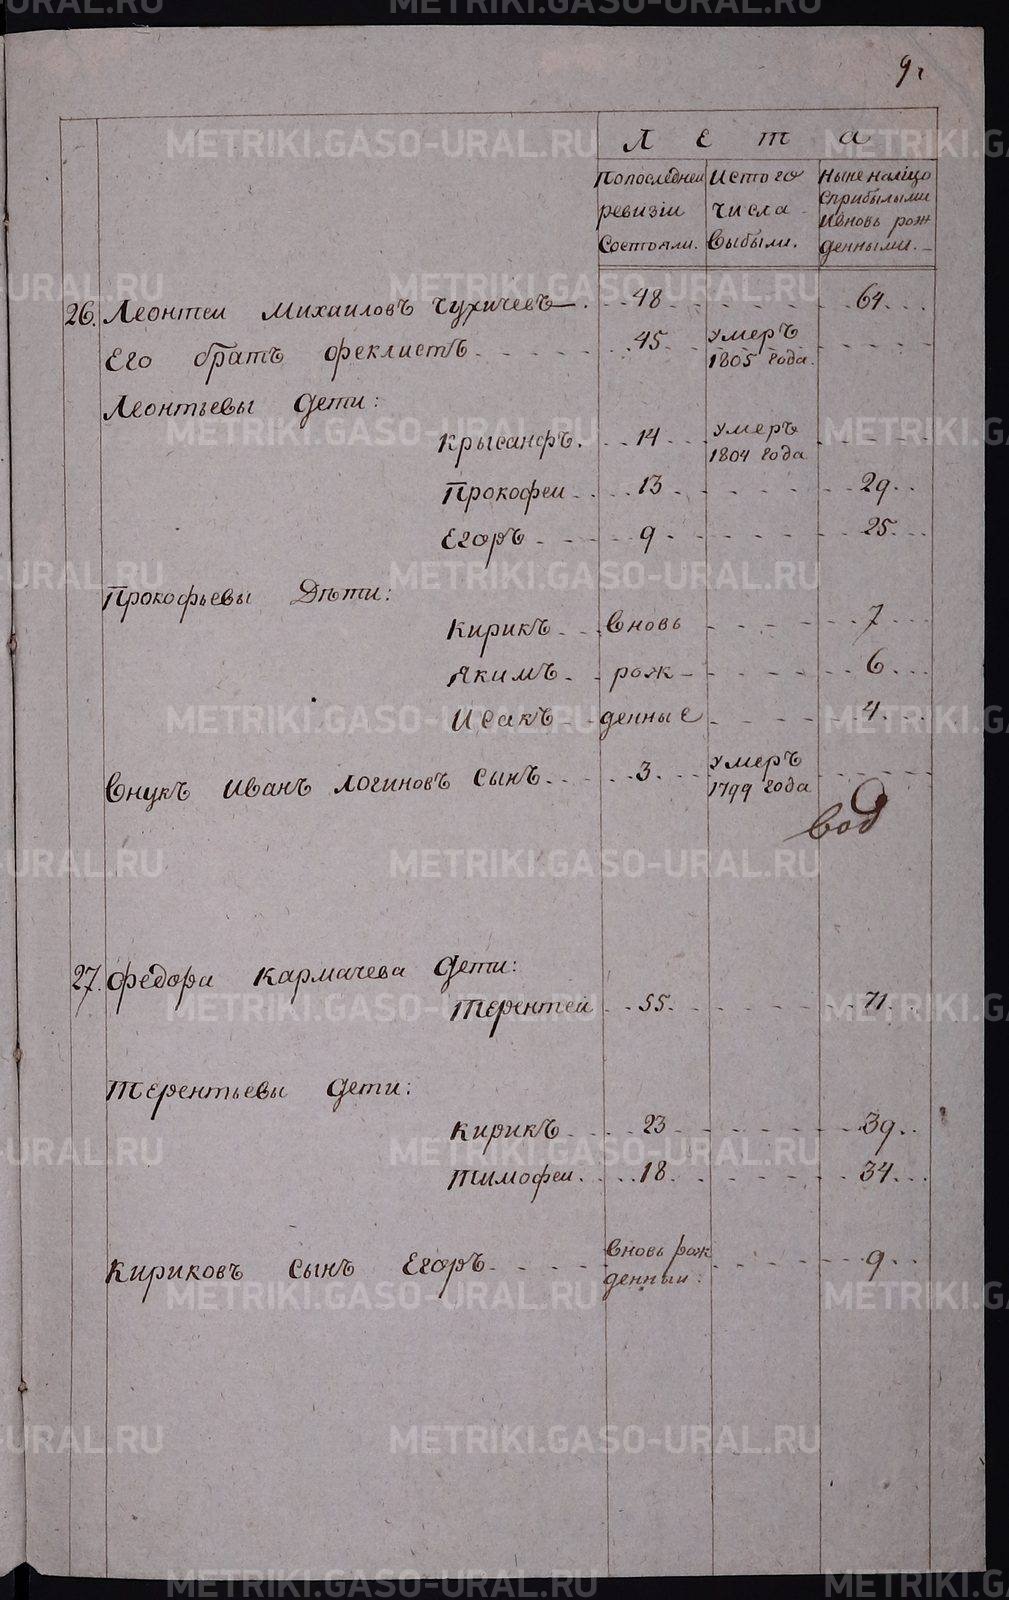 9.
Лета
По последней ревизiи состояли.
Ис того числа выбыли.
Ныне налицо с прибылыми и вновь рожденными.
26. Леонтеи Михаиловъ Чухичевъ 48 64
Его братъ Феклистъ 45 умеръ 1805 года.
Леонтьевы дети:
Крысанфъ. 14 умеръ 1804 года
Прокофеи 13 29
Егоръ 9 25
Прокофьевы Дѣти:
Кирикъ вновь 7
Якимъ рож 6
Исакъ денные 4
Внукъ Иванъ Логиновъ сынъ 3 умеръ 1799 года
27. Федора Кармачева дети:
Терентеи 55 71
Терентьевы дети:
Кирикъ 23 39
Тимофеи 18 34
Кириковъ сынъ Егоръ вновь рожденныи 9
METRIKI.GASO-URAL.RU